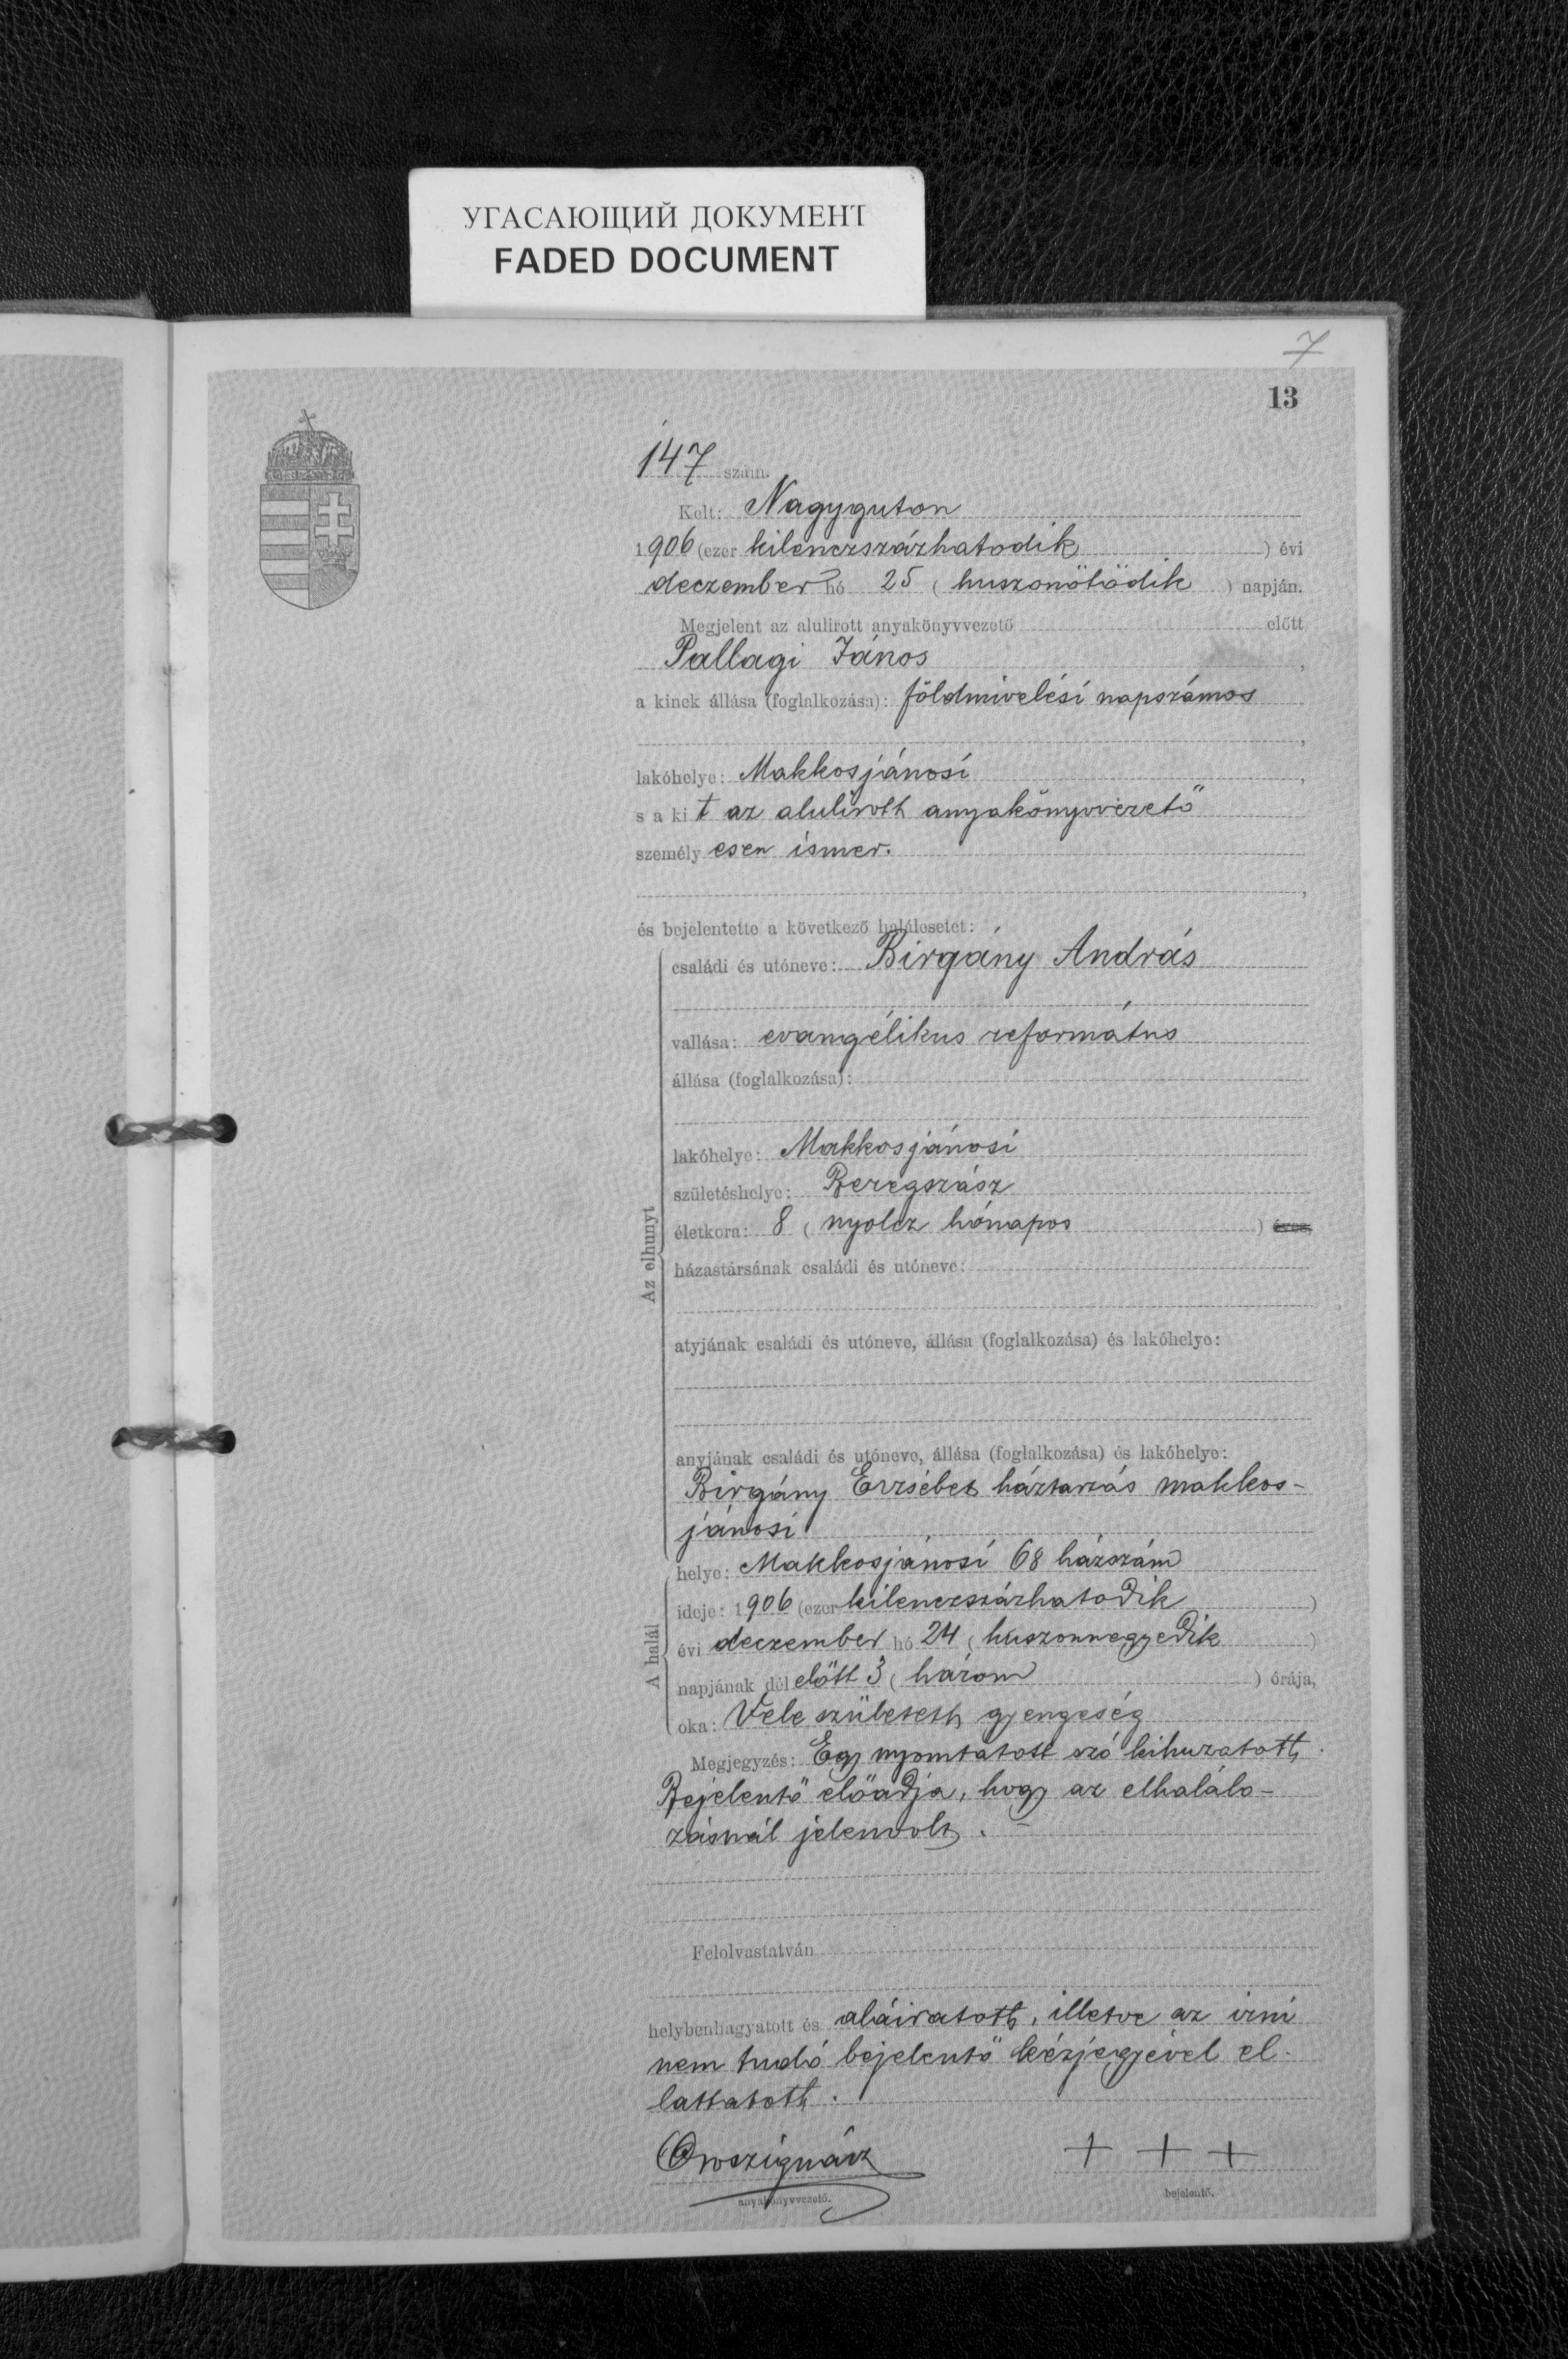 УГАСАЮЩИЙ ДОКУМЕНТ
FADED DOCUMENT
7
13
147 szám.
Kelt: Nagyguton
1906 (ezer kilenczszázhatodik ) évi
deczember hó 25 ( huszonötödik ) napján.
Megjelent az alulirott anyakönyvvezető előtt
Pallagi János ,
a kinek állása (foglalkozása): földmivelési napszámos
,
lakóhelye: Makkosjánosi ,
s a kit az alulirott anyakönyvvezető
személyesen ismer.
,
és bejelentette a következő halálesetet:
Az elhunyt
családi és utóneve: Birgány András
vallása: evangélikus református
állása (foglalkozása):
lakóhelye: Makkosjánosi
születéshelye: Beregszász
életkora: 8 ( nyolcz hónapos ) éves,
házastársának családi és utóneve:
atyjának családi és utóneve, állása (foglalkozása) és lakóhelye:
anyjának családi és utóneve, állása (foglalkozása) és lakóhelye:
Birgány Erzsébet háztartás makkos-
jánosi
A halál
helye: Makkosjánosi 68 házszám
ideje: 1906 (ezer kilenczszázhatodik )
évi deczember hó 24 ( huszonnegyedik )
napjának dél előtt 3 ( három ) órája,
oka: Vele született gyengeség
Megjegyzés: Egy nyomtatott szó kihuzatott.
Bejelentő előadja, hogy az elhalálo-
zásnál jelenvolt. -
Felolvastatván
helybenhagyatott és aláiratott, illetve az irni
nem tudó bejelentő kézjegyével el-
lattatott.
Orosz Ignácz + + +
anyakönyvvezető. bejelentő.